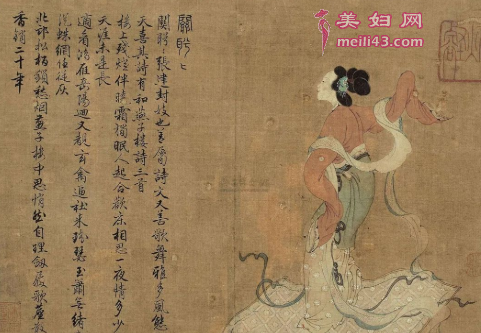 美妇网
meili43.com
關盼々
關盼々張建封妓也善屬詩文又善歌舞雅多風態
天喜其詩有和燕子樓詩三首
樓上殘燈伴曉霜獨眠人起合歡床相思一夜情多少
天涯未是長
適看鴻雁岳陽迴又覩玄禽逼社來瑤瑟玉簫無緒
從蛛網任從灰
北邙松柏鎖愁烟燕子樓中思悄然自理劍履歌塵散
香銷二十年